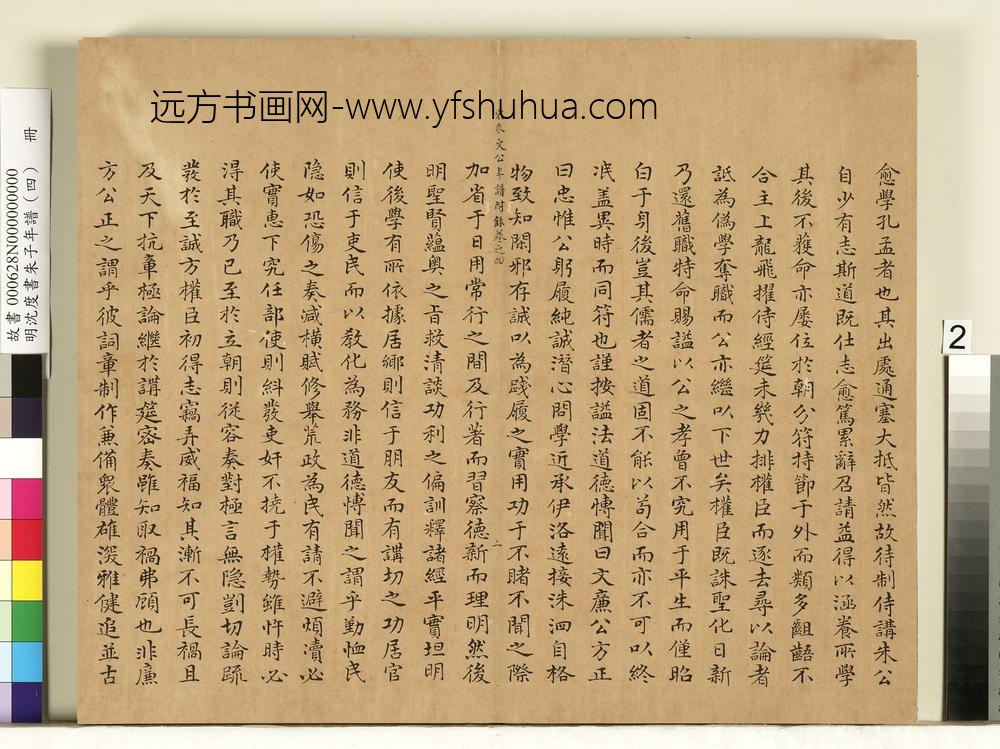 远方书画网-www.yfshuhua.com
愈學孔孟者也其出處通塞大抵皆然故待制侍講朱公
自少有志斯道既仕志愈篤累辭召請益得以涵養所學
其後不獲命亦屡位於朝分符持節于外而類多齟齬不
合主上龍飛擢侍經筵未幾力排權臣而逐去尋以論者
詆為偽學奪職而公亦繼以下世矣權臣既誅聖化日新
乃還舊職特命賜謚以公之孝曾不究用于平生而僅昭
白于身後豈其儒者之道固不能以苟合而亦不可以終
泯盖異時而同符也謹按謚法道德博聞曰文廉公方正
曰忠惟公躬履純誠潛心問學近承伊洛遠接洙泗自格
物致知閑邪存誠以為踐履之實用功于不睹不聞之際
朱文公年譜附錄卷之四
二
加省于日用常行之間及行著而習察德新而理明然後
明聖賢蘊奥之旨救清談功利之偏訓釋諸經平實坦明
使後學有所依據居鄉則信于朋友而有講切之功居官
則信于吏民而以教化為務非道德博聞之謂乎勤恤民
隐如恐傷之奏減橫賦修舉荒政為民有請不避煩瀆必
使實惠下究任部使則糾發吏奸不撓于權勢雖忤時必
得其職乃已至於立朝則從容奏對極言無隐剴切論疏
發於至誠方權臣初得志竊弄威福知其漸不可長禍且
及天下抗章極論繼於講筵密奏雖知取禍弗顧也非廉
方公正之謂乎彼詞章制作兼備衆體雄深雅健追並古
故書000628N000000000
明沈度書朱子年譜(四) 冊
2